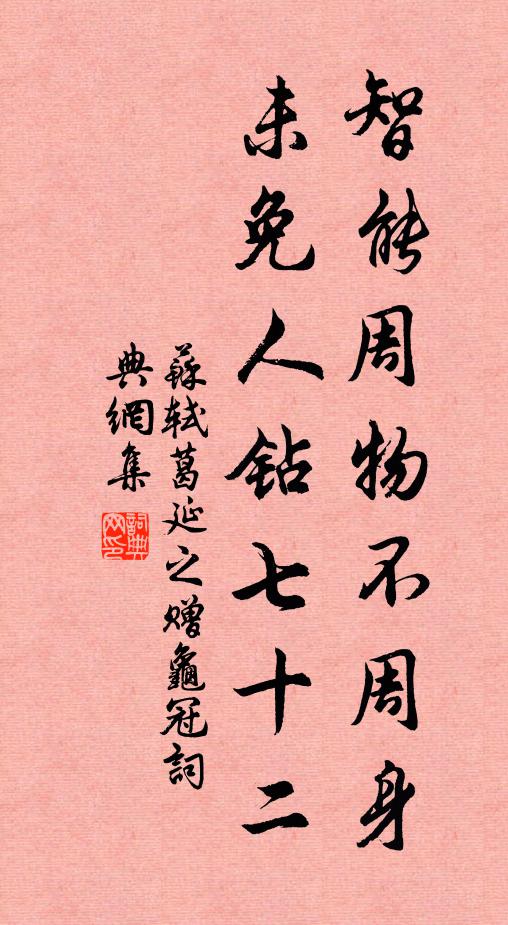 智能周物不周身
未免人钻七十二
蘇轼葛延之赠龜冠詞
典網集
詞典
网印